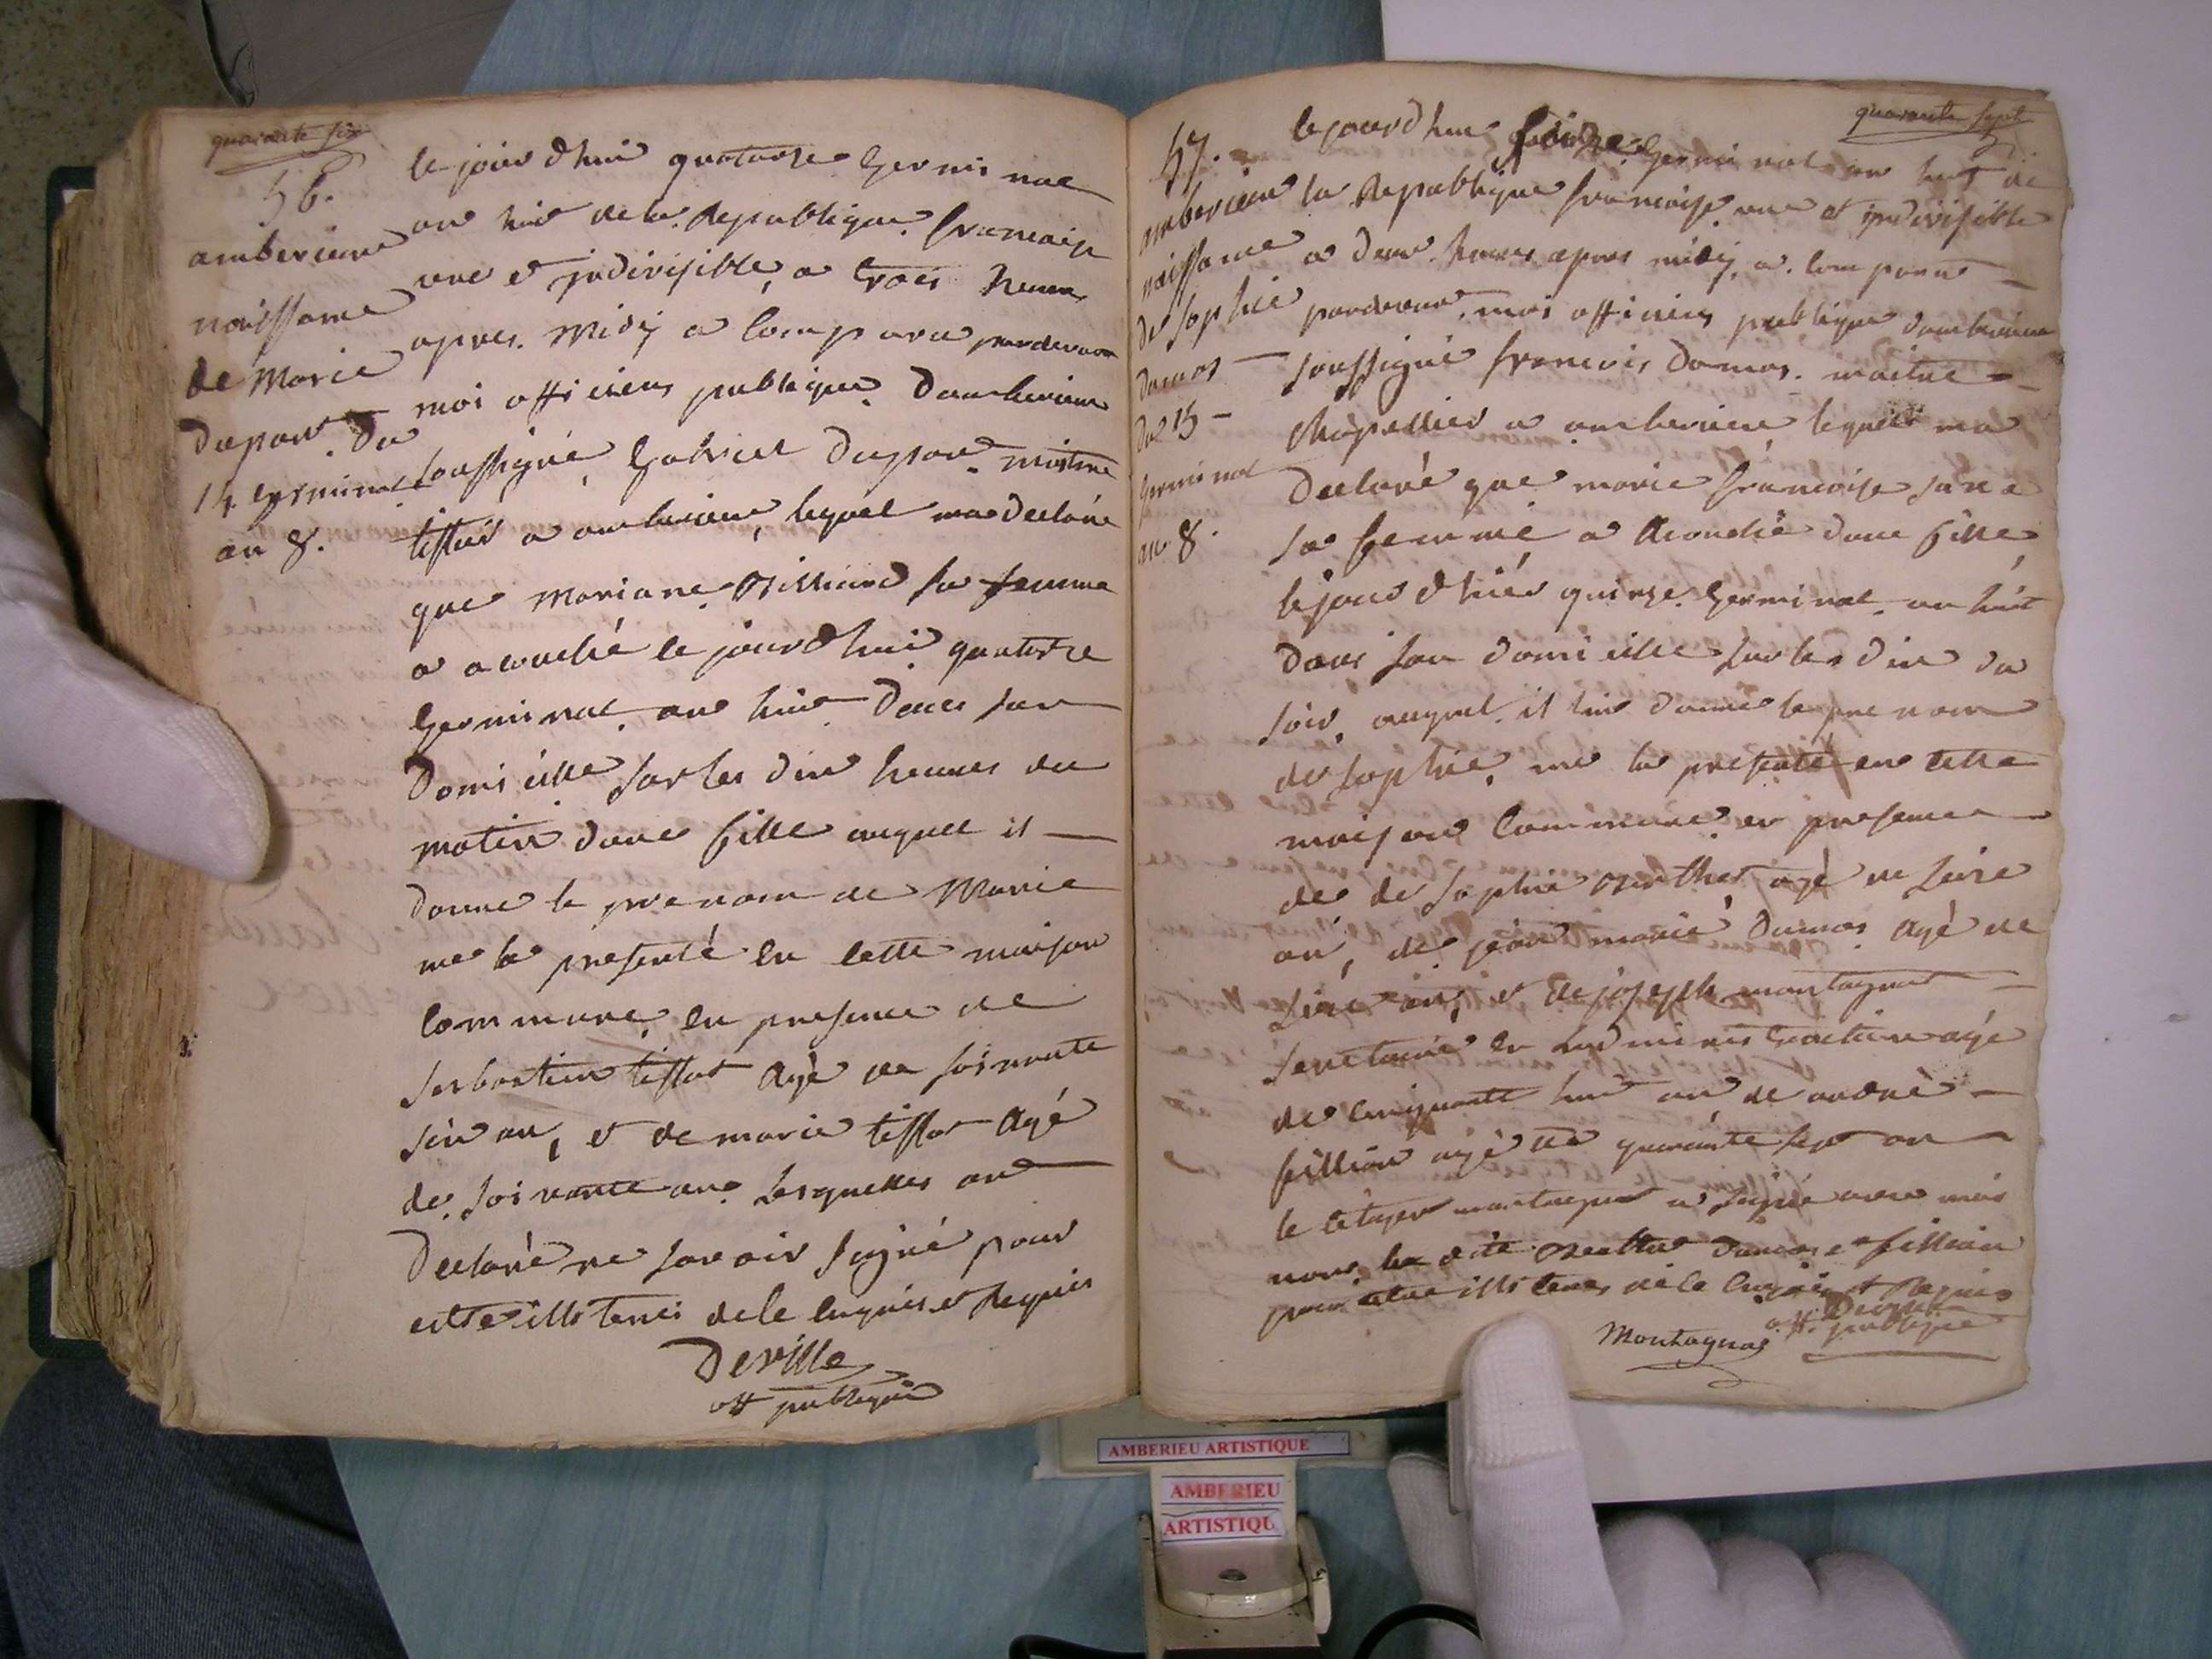 quarante six
56.
amberieux
naissance
de Marie
dupont du
14 germinal
an 8.
le jourd'hui quatorze germinal
an huit de la Republique francaise
une et jndivisible, a trois heures
apres midy a comparu pardevant
moi officiers publique d'amberieux
soussigné, Gabriel dupont maitre
tissier a amberieux, lequel ma declaré
que Mariane Billiard sa femme
a acouché le jourd'hui quatorze
germinal an huit dans son
domicille sur les dix heures du
matin d'une fille auquel il
donne le prenom de Marie
me la presenté en cette maison
commune en presence de
sesbastien tissot agé de soixante
six an, et de marie tissot agé
de soixante an lesquelles on
declaré ne savoir signé pour
estre illiterés de ce enquis et requis
Deville
off publique
quarante sept
57.
amberieux
naissance
de sophie
dumas
du 15
germinal
an 8.
le jourd'hui seize germinal an huit de
la Republique francaise une et jndivisible
a deux heures apres midy, a comparu
pardevant moi officiers publique d'amberieux
soussigné francois dumas maitre
chapellier a amberieux lequel ma
declaré que marie francoise
sa femme a acouché d'une fille
le jour d'hier quinze germinal an huit
dans son domicille sur les dix du
soir, auquel il lui donne le prenom
de sophie, me la presenté en cette
maison commune en presence
de de sophie agé de seize
an, de jean marie dumas agé de
seize ans et de joseph montagnat
secretaire en administration agé
de cinquante huit an de andré
fillion agé de quarante sept an
le citoyen montagnat a signé avec moi
non la dite dumas et fillion
pour etre illiterés de ce enquis et requis
Montagnat
Deville
off. publique
AMBERIEU ARTISTIQUE
AMBERIEU
ARTISTIQU